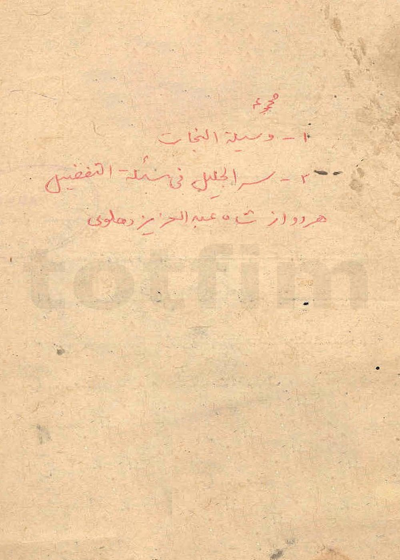 مجموعه
۱ - وسیلة النجات
۲ - سر الجلیل فی مسئلة التفضیل
هردو از شاه عبدالعزیز دهلوی
totfim